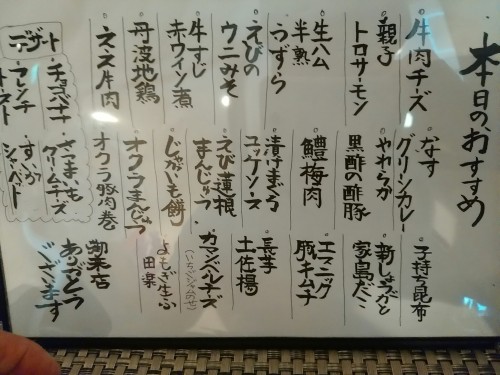 本日のおすすめ
牛肉チーズ
親子
トロサーモン
生ハム
半熟
うずら
えびの
ウニみそ
牛すじ
赤ワイン煮
丹波地鶏
ネネ牛肉
なす
グリーンカレー
やわらか
黒酢の酢豚
鱧梅肉
漬けまぐろ
ユッケソース
えび蓮根
まんじゅう
じゃがいも餅
オクラまんじゅう
オクラ豚肉巻
子持ち昆布
新しょうがと
家島だこ
エスニック
豚キムチ
長芋
土佐揚
カマンベールチーズ
よもぎ生ふ
田楽
御来店
ありがとう
ございます
デザート
チョコバナナ
フレンチ
トースト
さつまいも
クリームチーズ
すいか
シャーベット